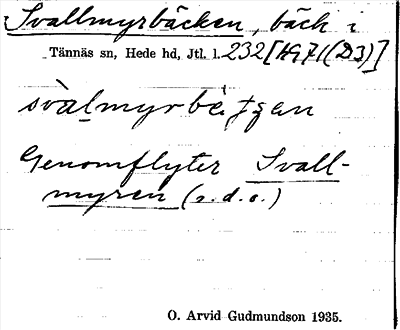 Svallmyrbäcken, bäck i
Tännäs sn, Hede hd, Jtl. l. 232[HG71(D3)]
Genomflyter Svall-
myren (s.d.o.)
O. Arvid Gudmundson 1935.